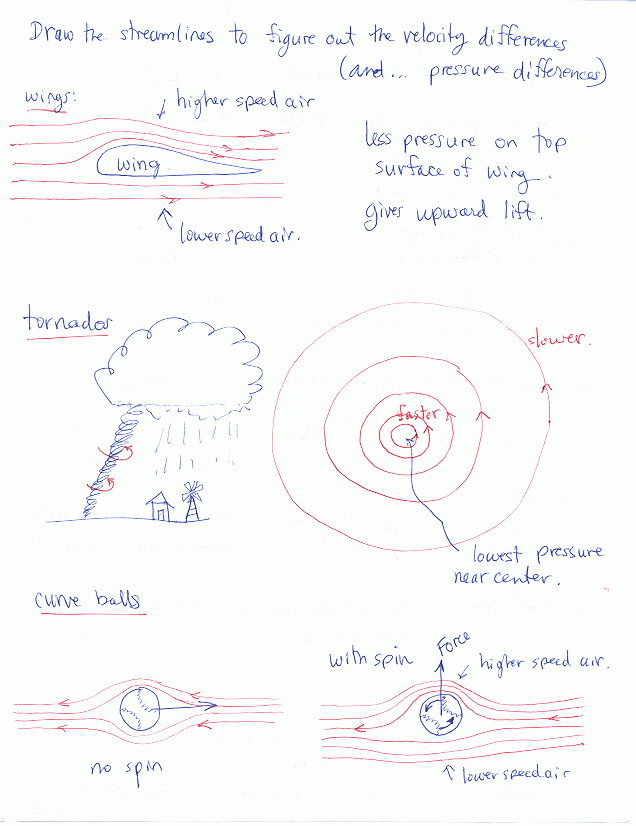 Draw the streamlines to figure out the velocity differences
(and... pressure differences)
wings:
higher speed air
wing
lower speed air.
less pressure on top
surface of wing.
gives upward lift.
tornados
slower.
faster
lowest pressure
near center.
curve balls
no spin
with spin
Force
higher speed air.
lower speed air